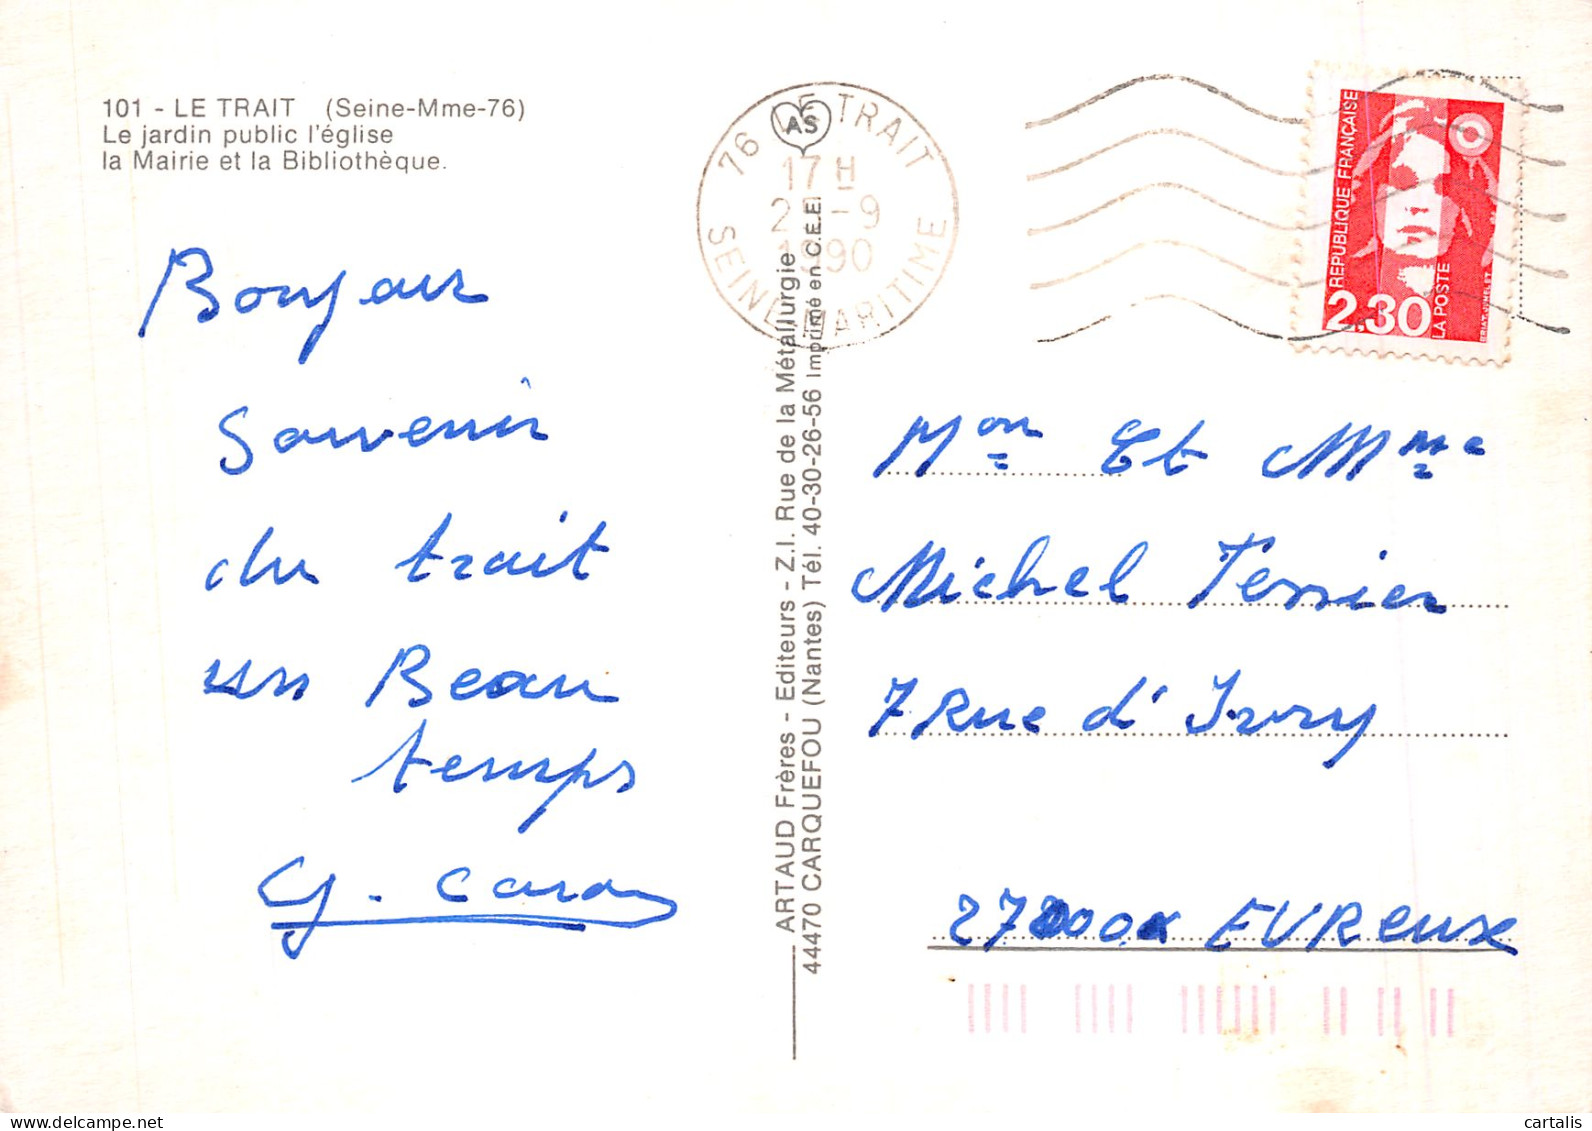 101 - LE TRAIT (Seine-Mme-76)
Le jardin public l'église
la Mairie et la Bibliothèque.
Bonjour
Souvenir
du trait
un Beau
temps
G. Caron
AS
ARTAUD Frères - Editeurs - Z.I. Rue de la Métallurgie
44470 CARQUEFOU (Nantes) Tél. 40-30-26-56 Imprimé en C.E.E.
76 LE TRAIT
17 H
-9
1990
SEINE MARITIME
REPUBLIQUE FRANÇAISE
2,30
LA POSTE
Mon Et Mme
Michel Terrier
7 Rue d'Ivry
27000 EVReux
cartalis